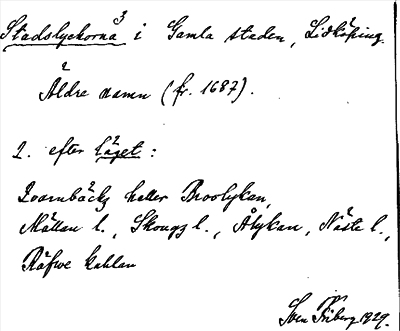 Stadslyckorna³ i Gamla staden, Lidköping.
Äldre namn (fr. 1687).
2. efter läget:
Qvarnbäcks heller Broolykan,
Måttan l., Skougz l., Ålykan, Näste l.,
Räfwe kahlan
Sven Friberg 1929.